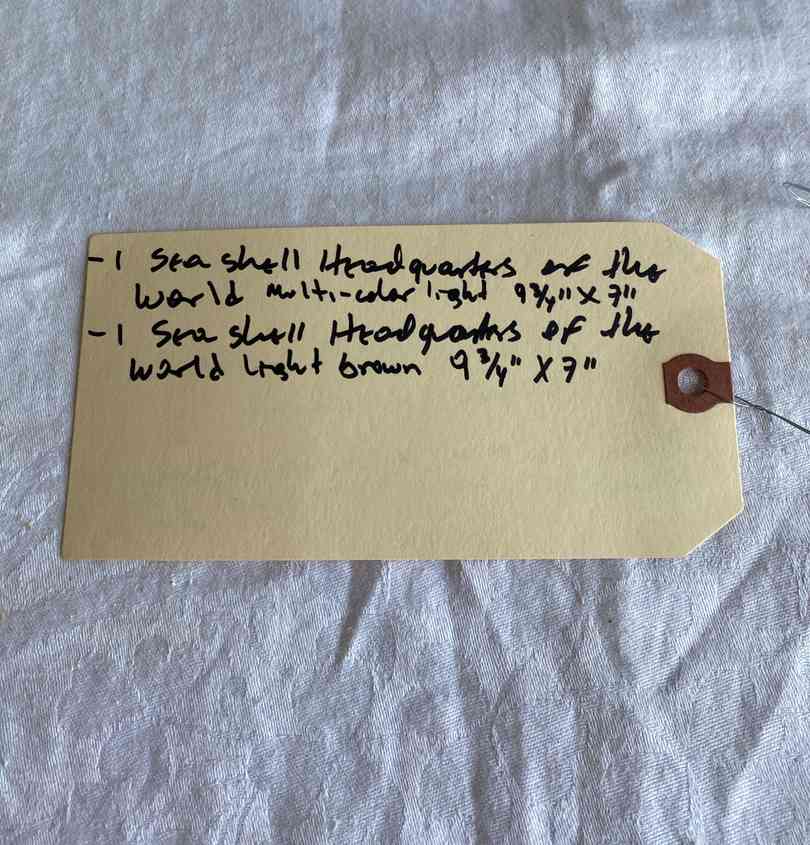 - 1 Sea shell Headquarters of the
World Multi-color light 9 3/4" X 7"
- 1 Sea shell Headquarters of the
World Light brown 9 3/4" X 7"